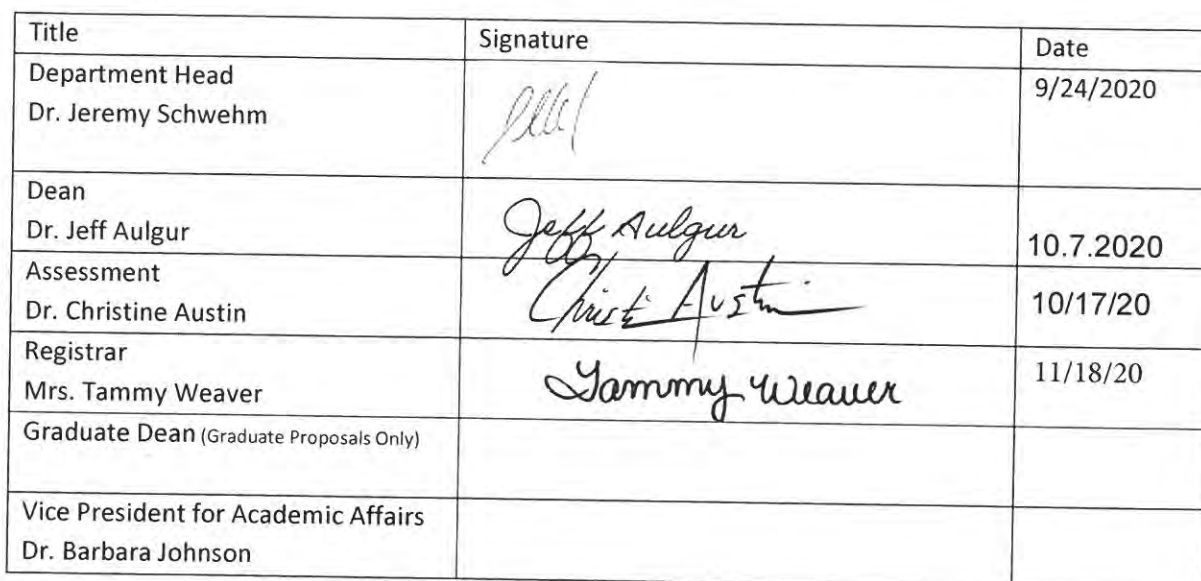 Title Signature Date
Department Head 9/24/2020
Dr. Jeremy Schwehm
Dean
Dr. Jeff Aulgur Jeff Aulgur 10.7.2020
Assessment
Dr. Christine Austin Christi Austin 10/17/20
Registrar 11/18/20
Mrs. Tammy Weaver Tammy Weaver
Graduate Dean (Graduate Proposals Only)
Vice President for Academic Affairs
Dr. Barbara Johnson